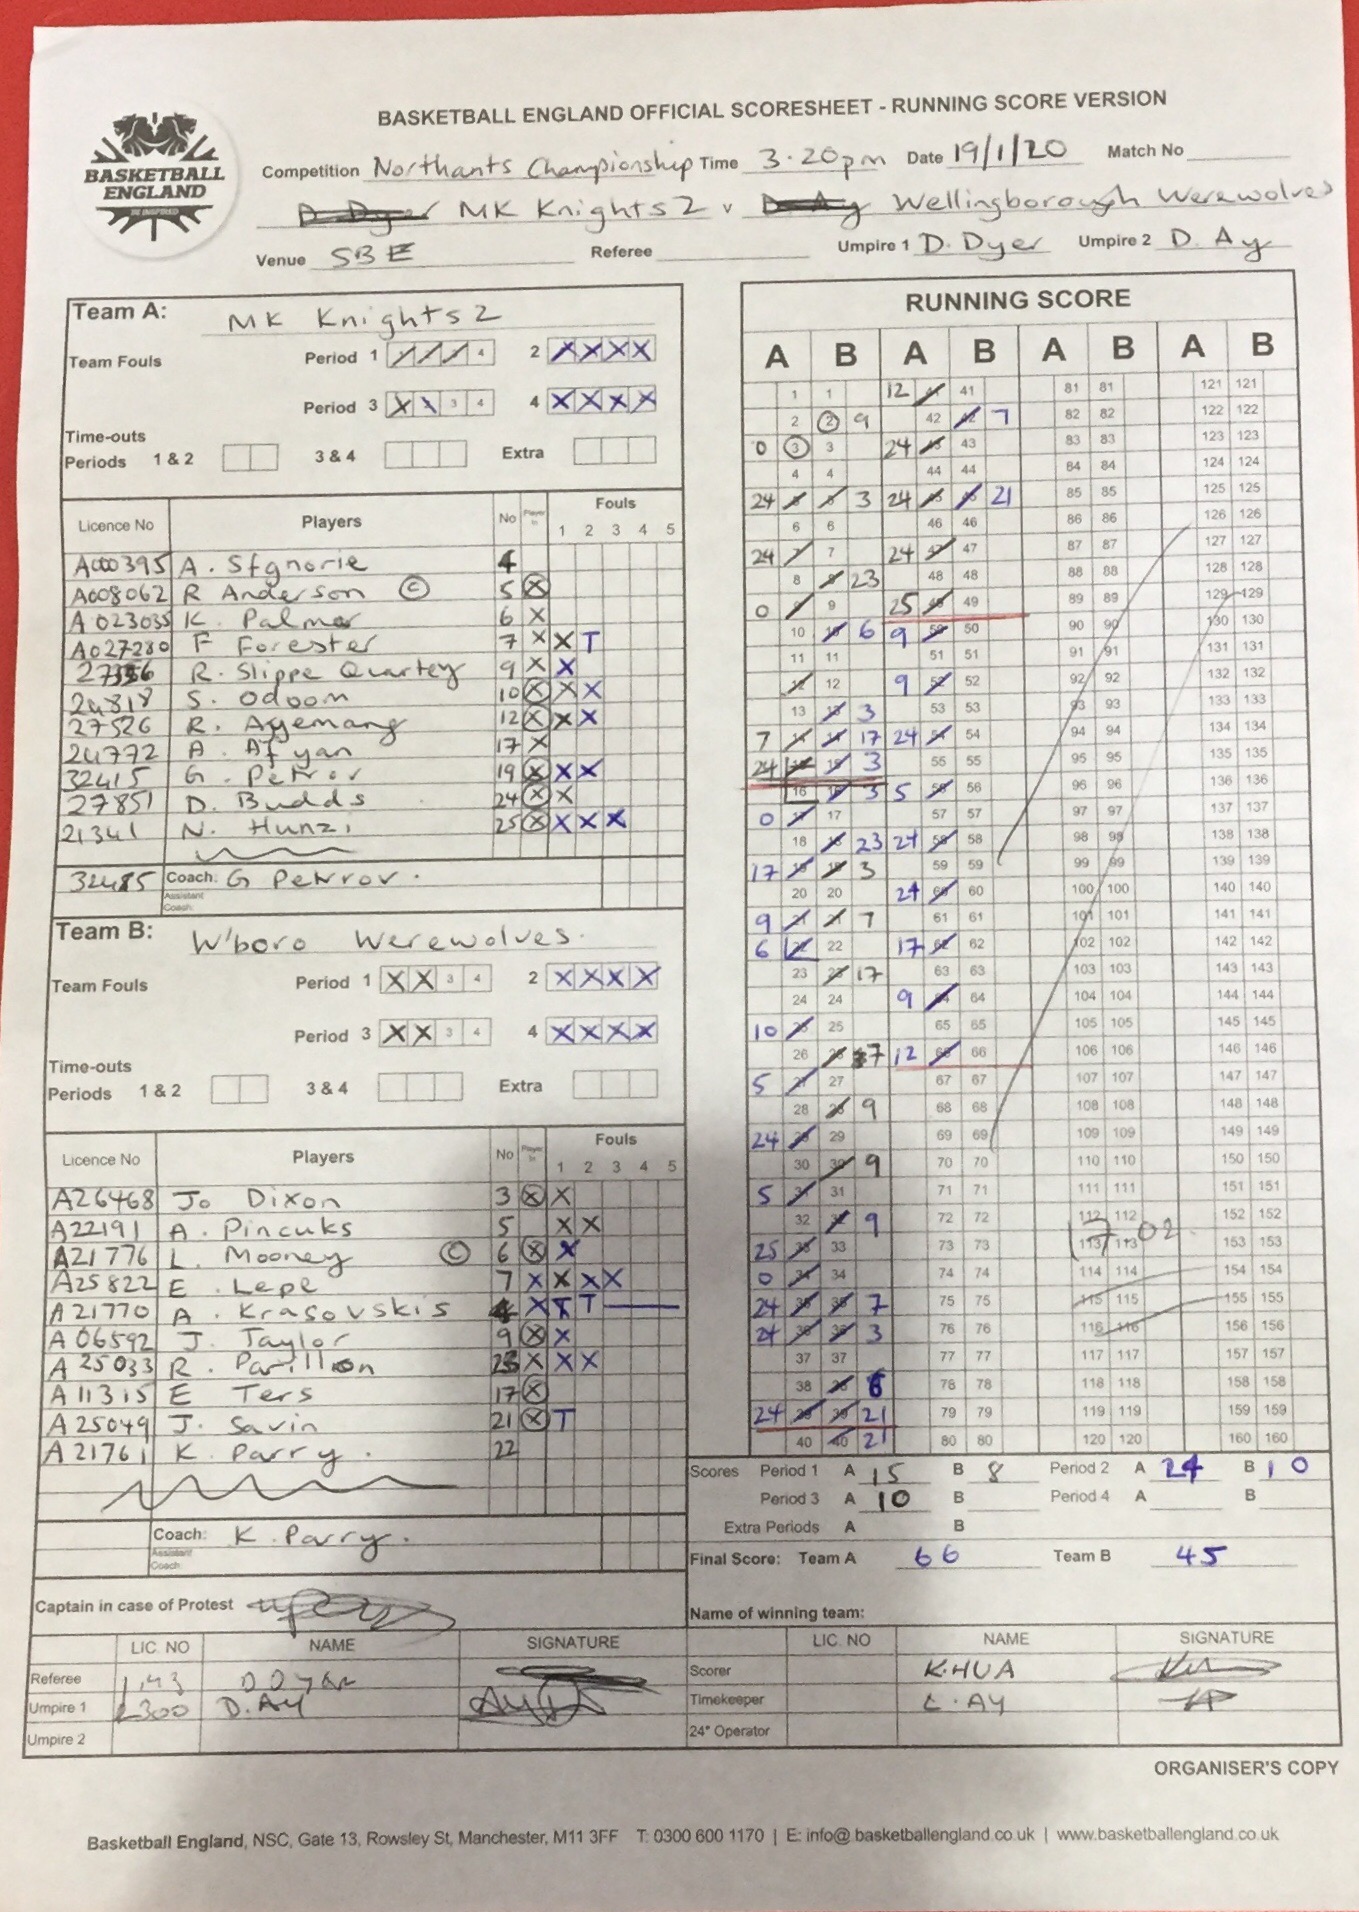 BASKETBALL ENGLAND OFFICIAL SCORESHEET - RUNNING SCORE VERSION
BASKETBALL
ENGLAND
Competition Northants Championship Time 3.20pm Date 19/1/20 Match No
MK Knights 2 v Wellingborough Werewolves
Venue SBE Referee Umpire 1 D. Dyer Umpire 2 D. Ay
Team A: MK Knights 2
Team Fouls Period 1 4 2
Period 3 3 4 4
Time-outs
Periods 1 & 2 3 & 4 Extra
Licence No Players No Player In Fouls
1 2 3 4 5
A000395 A. Sfgnorie 4
A008062 R Anderson © 5 X
A023035 K. Palmer 6 X
A027280 F Forester 7 X X T
R. Slippe Quartey 9 X X
24818 S. Odoom 10 X X X
27526 R. Agyemang 12 X X X
24772 A. Afyan 17 X
32415 G. Petrov 19 X X X
27851 D. Budds 24 X X
21341 N. Hunzi 25 X X X X
32485 Coach: G Petrov.
Assistant Coach:
Team B: W'boro Werewolves.
Team Fouls Period 1 X X 3 4 2 X X X X
Period 3 X X 3 4 4 X X X X
Time-outs
Periods 1 & 2 3 & 4 Extra
Licence No Players No Player In Fouls
1 2 3 4 5
A26468 Jo Dixon 3 X X
A22191 A. Pincuks 5 X X
A21776 L. Mooney © 6 X X
A25822 E. Lepe 7 X X X X
A21770 A. Krasovskis X T T
A06592 J. Taylor 9 X X
A25033 R. Parillon 23 X X X
A11315 E Ters 17 X
A25049 J. Savin 21 X T
A21761 K. Parry. 22
Coach: K. Parry.
Assistant Coach:
Captain in case of Protest
LIC. NO NAME SIGNATURE
Referee
Umpire 1 D. AY
Umpire 2
RUNNING SCORE
A B A B A B A B
1 1 12 41 41 81 81 121 121
2 2 9 42 42 7 82 82 122 122
0 3 3 24 43 43 83 83 123 123
4 4 44 44 84 84 124 124
24 5 5 3 24 45 45 21 85 85 125 125
6 6 46 46 86 86 126 126
24 7 7 24 47 47 87 87 127 127
8 8 23 48 48 88 88 128 128
0 9 9 25 49 49 89 89 129 129
10 10 6 9 50 50 90 90 130 130
11 11 51 51 91 91 131 131
12 12 9 52 52 92 92 132 132
13 13 3 53 53 93 93 133 133
7 14 14 17 24 54 54 94 94 134 134
24 15 15 3 55 55 95 95 135 135
16 16 3 5 56 56 96 96 136 136
0 17 17 57 57 97 97 137 137
18 18 23 24 58 58 98 98 138 138
17 19 19 3 59 59 99 99 139 139
20 20 24 60 60 100 100 140 140
9 21 21 7 61 61 101 101 141 141
6 22 22 17 62 62 102 102 142 142
23 23 17 63 63 103 103 143 143
24 24 9 64 64 104 104 144 144
10 25 25 65 65 105 105 145 145
26 26 7 12 66 66 106 106 146 146
5 27 27 67 67 107 107 147 147
28 28 9 68 68 108 108 148 148
24 29 29 69 69 109 109 149 149
30 30 9 70 70 110 110 150 150
5 31 31 71 71 111 111 151 151
32 32 9 72 72 112 112 152 152
25 33 33 73 73 113 113 153 153
0 34 34 74 74 114 114 154 154
24 35 35 7 75 75 115 115 155 155
24 36 36 3 76 76 116 116 156 156
37 37 77 77 117 117 157 157
38 38 6 78 78 118 118 158 158
24 39 39 21 79 79 119 119 159 159
40 40 21 80 80 120 120 160 160
17.02
Scores Period 1 A 15 B 8 Period 2 A 24 B 10
Period 3 A 10 B Period 4 A B
Extra Periods A B
Final Score: Team A 66 Team B 45
Name of winning team:
LIC. NO NAME SIGNATURE
Scorer K.HUA
Timekeeper C.AY
24" Operator
ORGANISER'S COPY
Basketball England, NSC, Gate 13, Rowsley St, Manchester, M11 3FF T: 0300 600 1170 | E: info@basketballengland.co.uk | www.basketballengland.co.uk